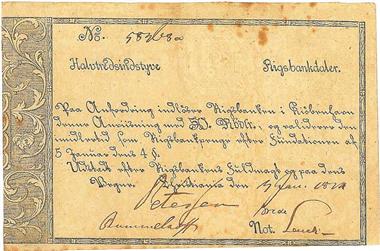 No. 58268a
Halvtredsindstyve Rigsbankdaler.
Paa Anfordring indløser Rigsbanken i Kiöbenhavn
denne Anviisning med 50. Rbdlr. og validerer den
imidlertid som Rigsbankpenge efter Fundationen af
5 Januar dens 4 §.
Udstædt efter Rigsbankens Fuldmagt og paa dens
Vegne. Christiania den
Petersen
Not.